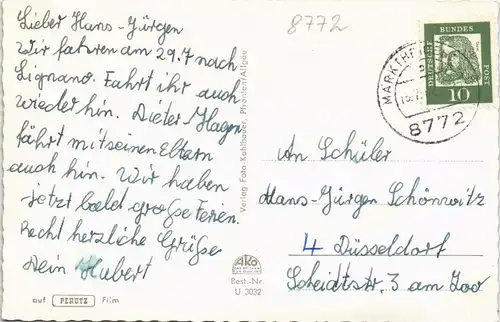 Lieber Hans-Jürgen
Wir fahren am 29.7 nach
Lignano. Fahrt ihr auch
wieder hin. Dieter Hagen
fährt mit seinen Eltern
auch hin. Wir haben
jetzt bald große Ferien.
Recht herzliche Grüße
Dein Hubert
auf PERUTZ Film
Verlag Foto-Kohlbauer, Pfronten/Allgäu
AKO
Best.-Nr.
U 3032
8772
DEUTSCHE BUNDES POST
10
8772
An Schüler
Hans-Jürgen Schönwitz
4 Düsseldorf
Scheidtstr. 3 am Zoo